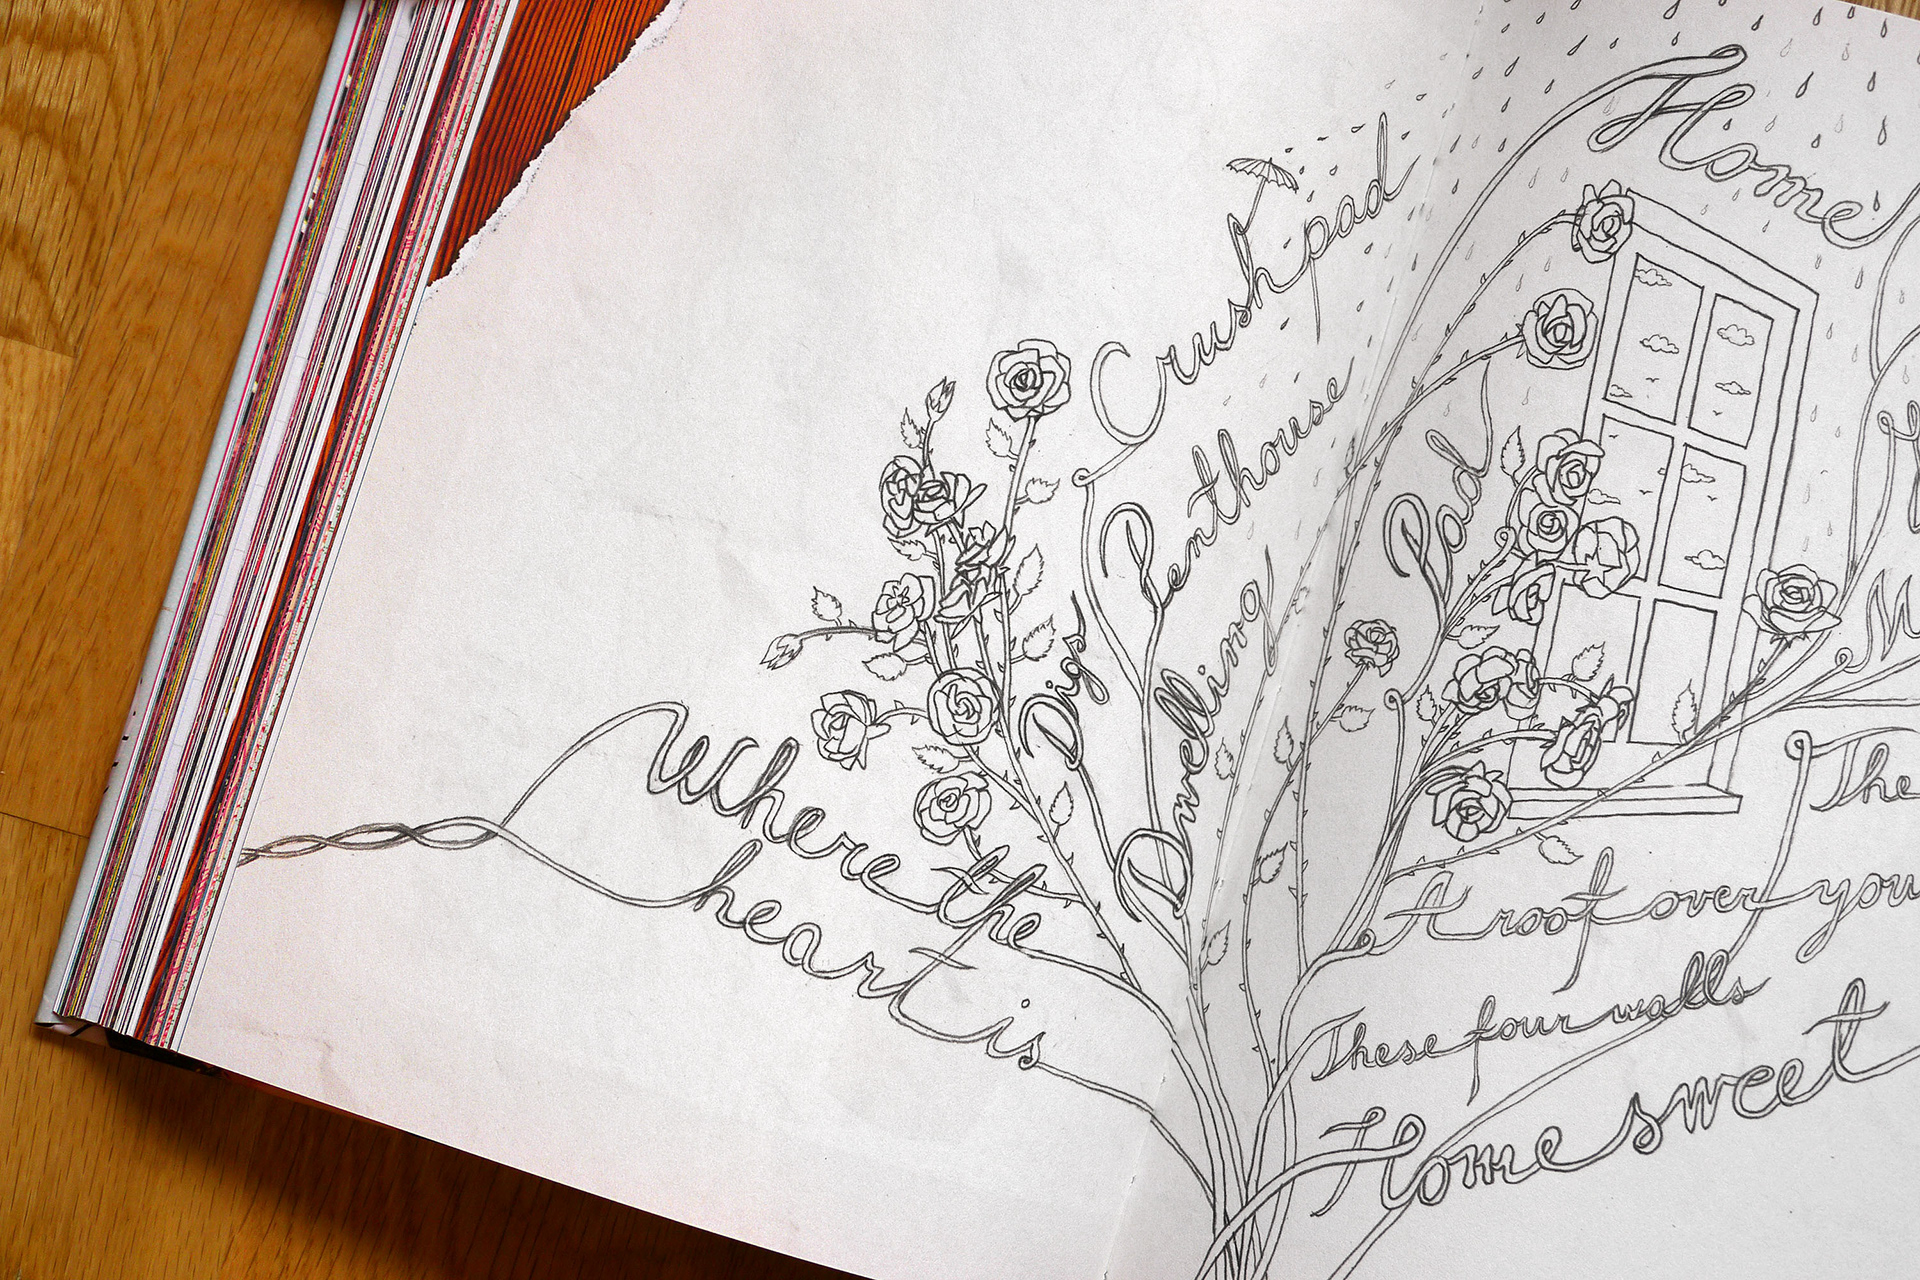 Where the
heart is
Digs
Crush pad
Penthouse
Dwelling
Home
Pad
M
The
A roof over you
These four walls
Home sweet